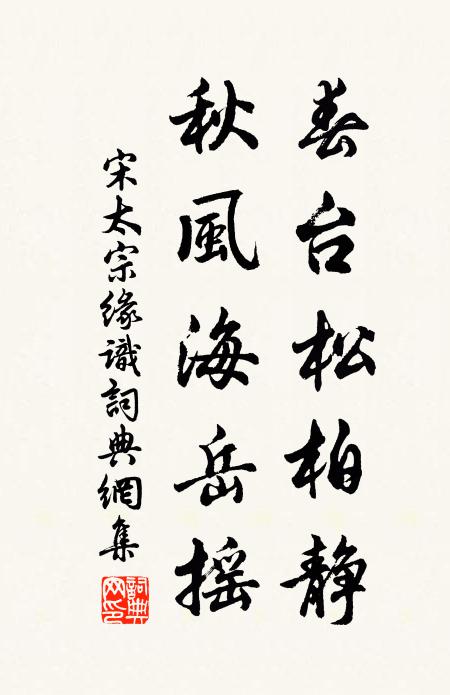 春台松柏静
秋風海岳摇
宋太宗緣識詞典網集
詞典網印